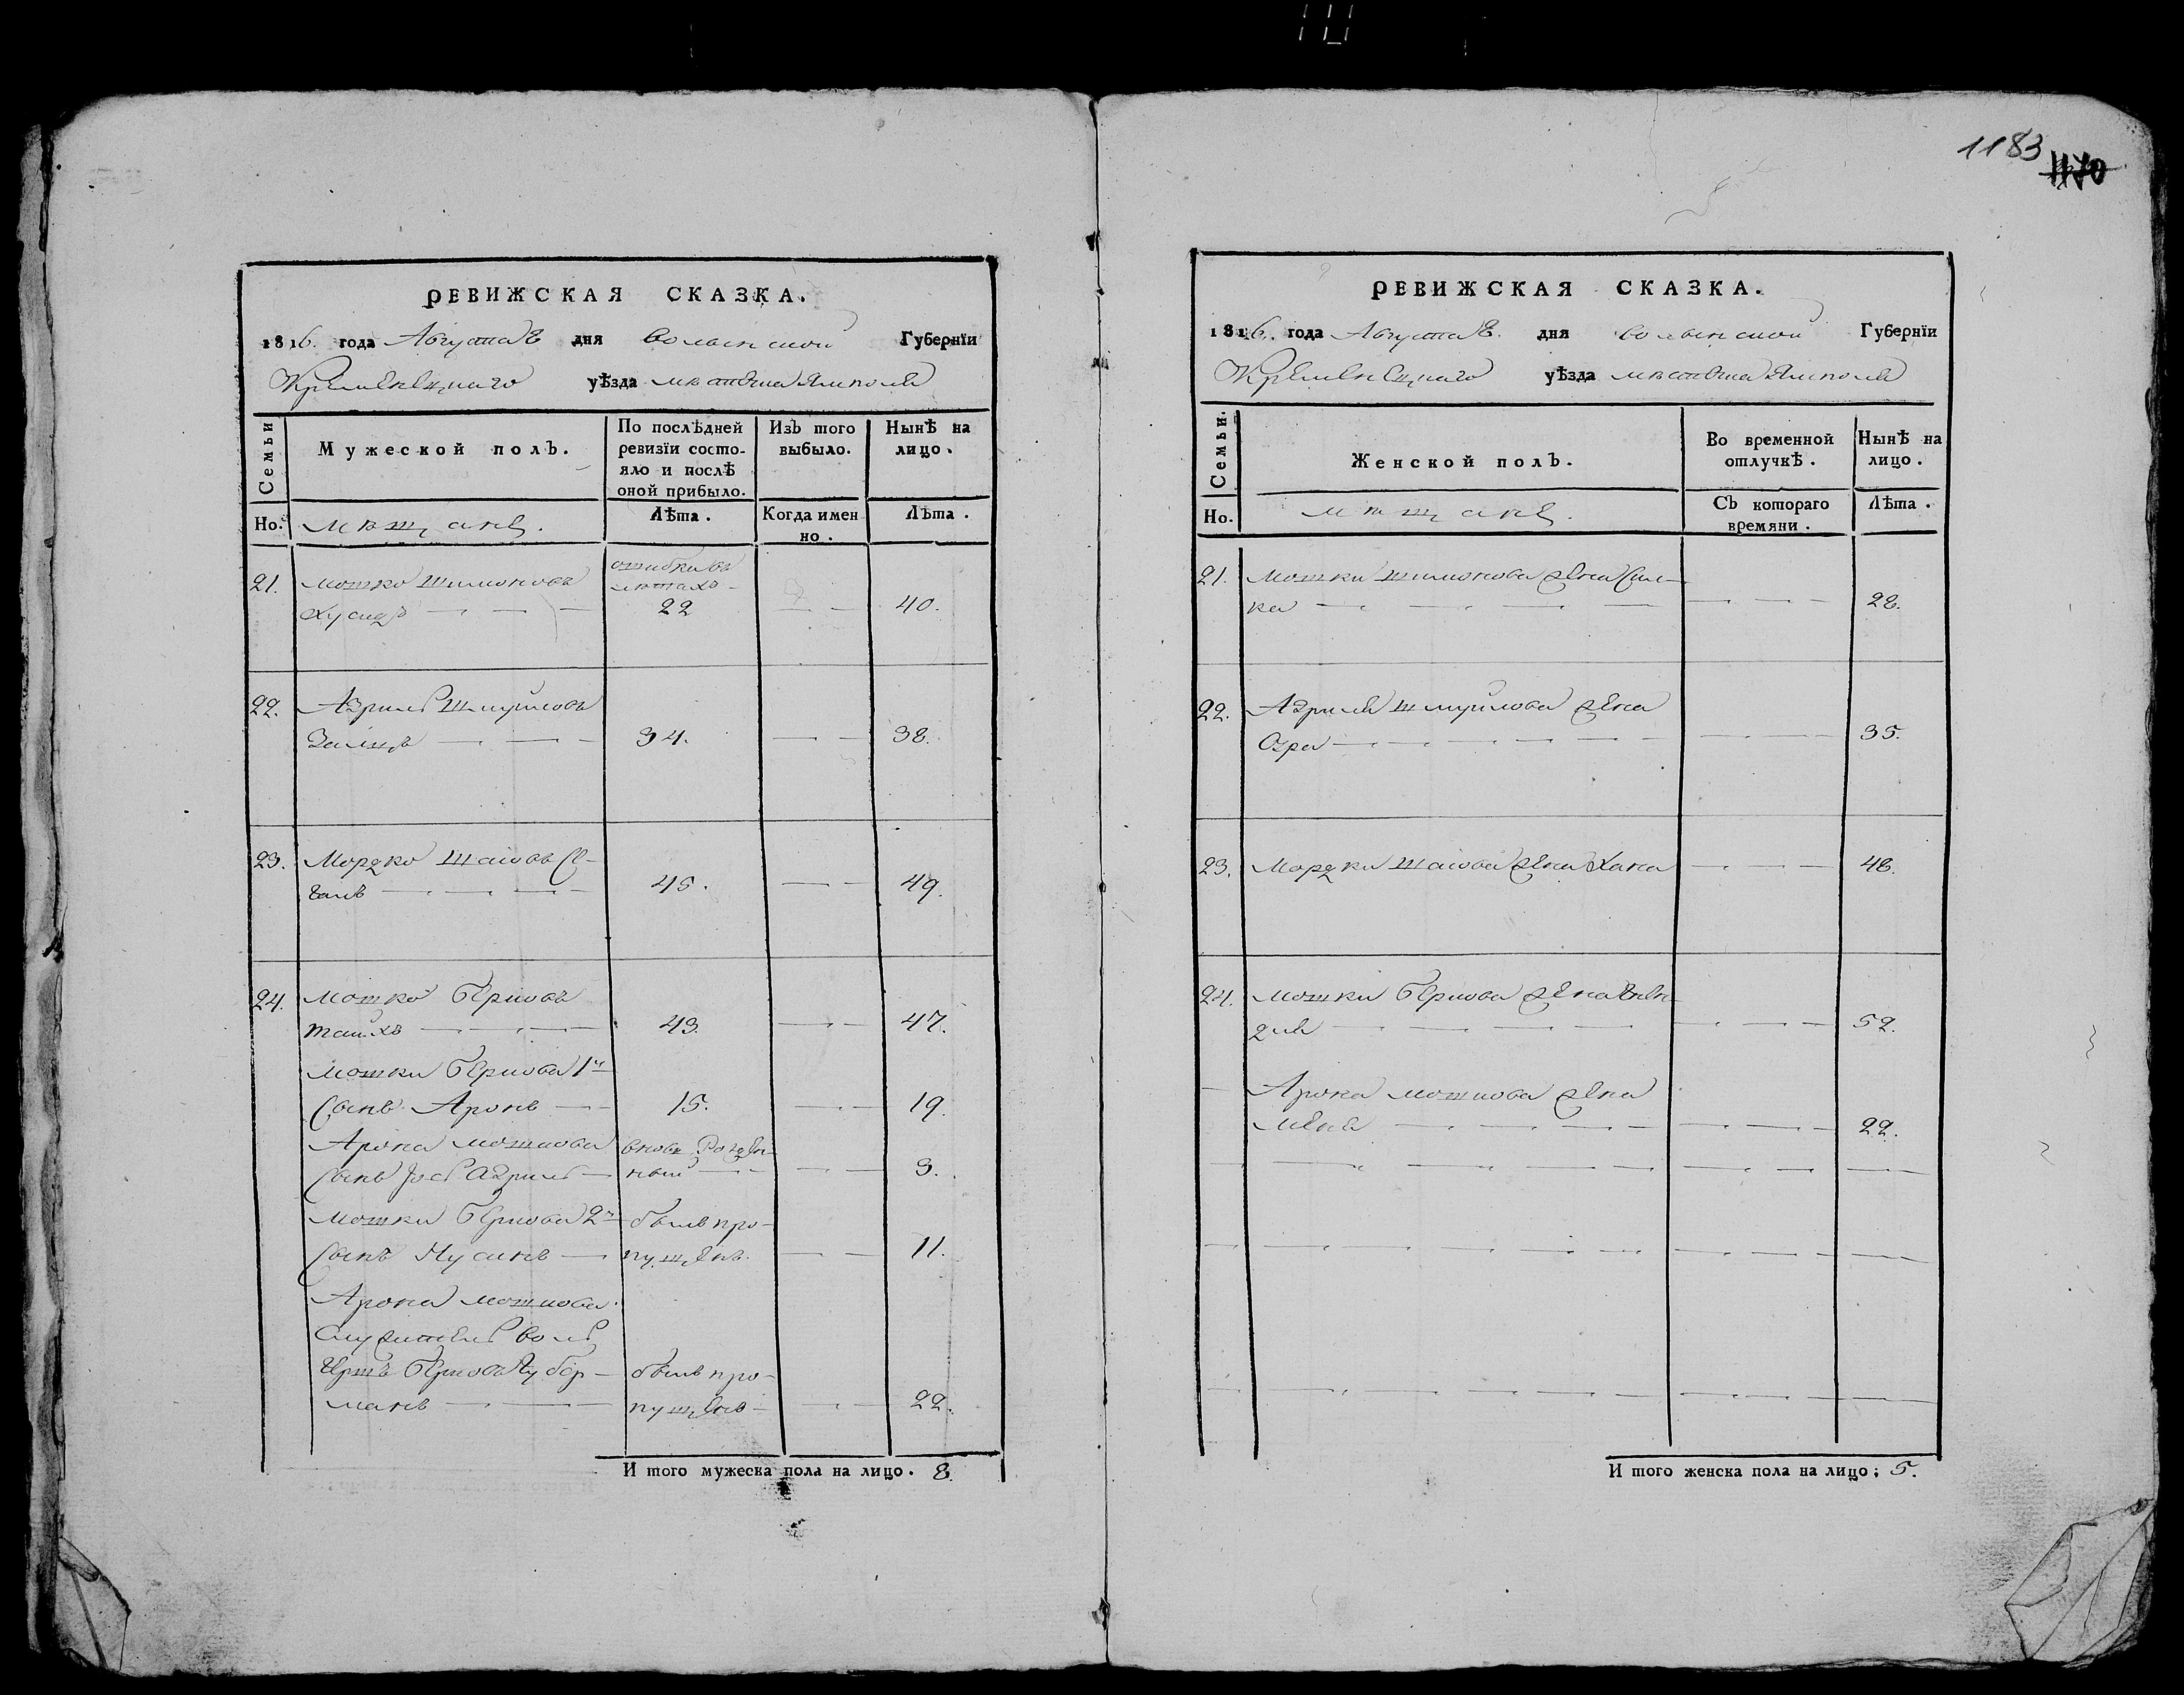 1183
1170
РЕВИЖСКАЯ СКАЗКА.
1816. года Августа 8 дня Волынской Губернїи
Кременецкаго уѣзда мѣстечка Ямполя
Семьи
Мужеской полъ.
По послѣдней
ревизїи состо-
яло и послѣ
оной прибыло.
Изъ того
выбыло.
Нынѣ на
лицо.
Но.
мѣщане.
Лѣта.
Когда имен
но.
Лѣта.
21. Мошко Шимоновъ ошибкивъ
лѣтахъ
Хусидъ 22 40.
22. Азриль Шмуйловъ
Заяцъ 34. 38.
23. Мордко Шаіовъ Се-
галъ 45. 49.
24. Мошко Берковъ
43. 47.
Мошки Беркова 1й
Сынъ Аронъ 15. 19.
Арона Мошкова вновь Рожден-
Сынъ Іось Азриль ный 3.
Мошки Беркова 2й былъ про-
Сынъ Нусинъ пущенъ. 11.
Арона Мошкова
Служитель Воль
былъ про-
манъ пущенъ 22.
И того мужеска пола на лицо. 8.
РЕВИЖСКАЯ СКАЗКА.
1816. года Августа 8. дня Волынской Губернїи
Кременецкаго уѣзда мѣстечка Ямполя
Семьи.
Женской полъ.
Во временной
отлучкѣ.
Нынѣ на
лицо.
Но.
мѣщане.
Съ котораго
времяни.
Лѣта.
21. Мошки Шимонова жена Сим-
ка 28.
22. Азриля Шмуйлова жена
Сура 35.
23. Мордки Шаіова жена Хана 48.
24. Мошки Беркова жена
52.
Арона Мошкова жена
22.
И того женска пола на лицо; 5.